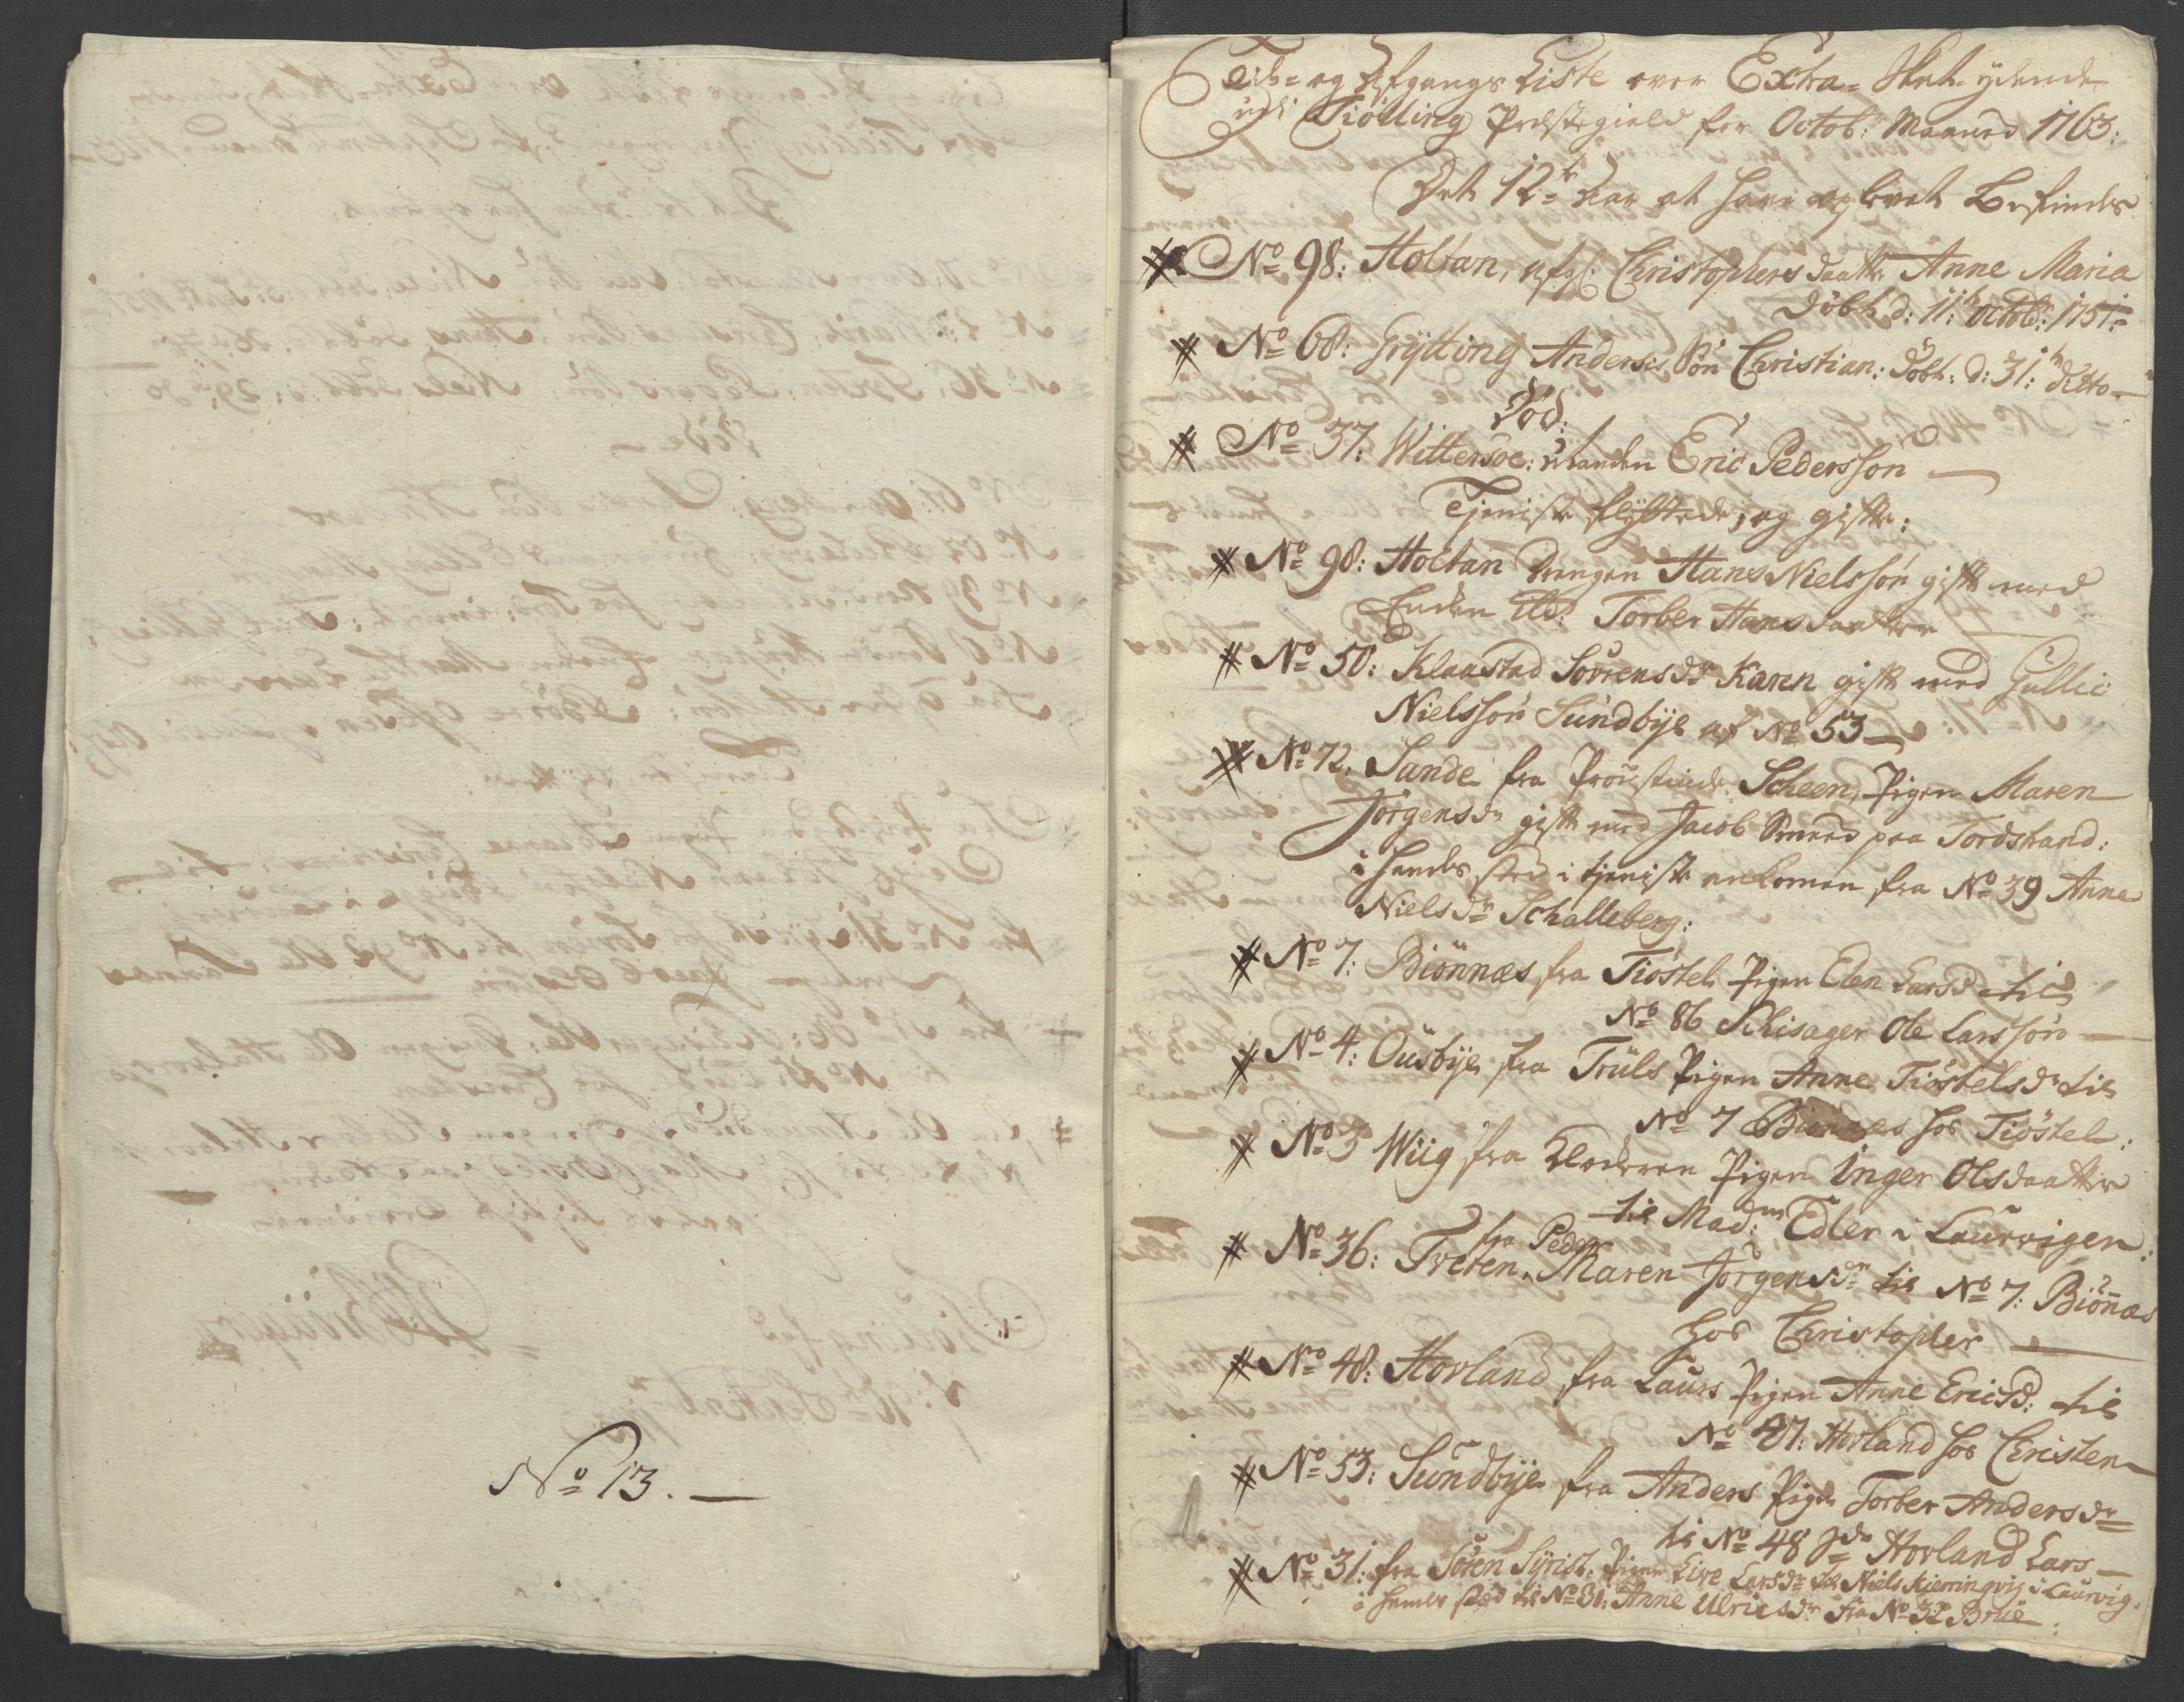 No 13. —
Til- og Afgangs Liste over Extra- Skat ydende
udi Tiølling Præstegield for Octob: Maaned 1763:
Det 12te Aar at have oplevet Befindes
No 98: Holtan, Christophersdaatter Anne Maria
døbt d: 11te octob: 1751:
No 68: Grÿtting Anderses Søn Christian: døbt: d: 31: dito —
Død:
No 37: Wittersøe: Manden Eric Pedersøn —
Tjeniste flyttede, og gifte:
No 98: Holtan Drengen Hans Nielssøn gift med
Enken ibd: Torber Hansdaatter
No 50: Klaastad Sørrensdr Karen gift med Gullic
Nielssøn Sundbÿe af No 53 —
No 72. Sande fra Proustinde Scheen, Pigen Maren
Jørgensdr gift med Jacob Smed paa Tordstrand:
i hendes sted i tjeniste ankomen fra No 39 Anne
Nielsdr Schalleberg:
No 7: Biønnæs fra Tiøstel Pigen Elen Larsd til
No 86 Schisager Ole Larssøn —
No 4: Ousbÿe fra Truls Pigen Anne Tiøstelsdr til
No 7 Biønnes hos Tiøstel:
No 3 Wiig fra Pigen Inger Olsdaatter
til Madm: Edler i Laurvigen:
fra Peder
No 36: Tveten, Maren Jørgensdr til No 7: Biønnæs
hos Christopler —
No 48: Hovland fra Laurs Pigen Anne Ericsd: til
No 47: Hovland hos Christen —
No 53: Sundbÿe fra Anders Pigen Torber Andersdr
til No 48 Hovland Lars —
No 31: fra Søren Sÿrist, Pigen Live Larsdr til Niels Kierringvig i Laurvig.
i hendes sted til No 31: Anne Ulricsdr fra No 32 Brue: